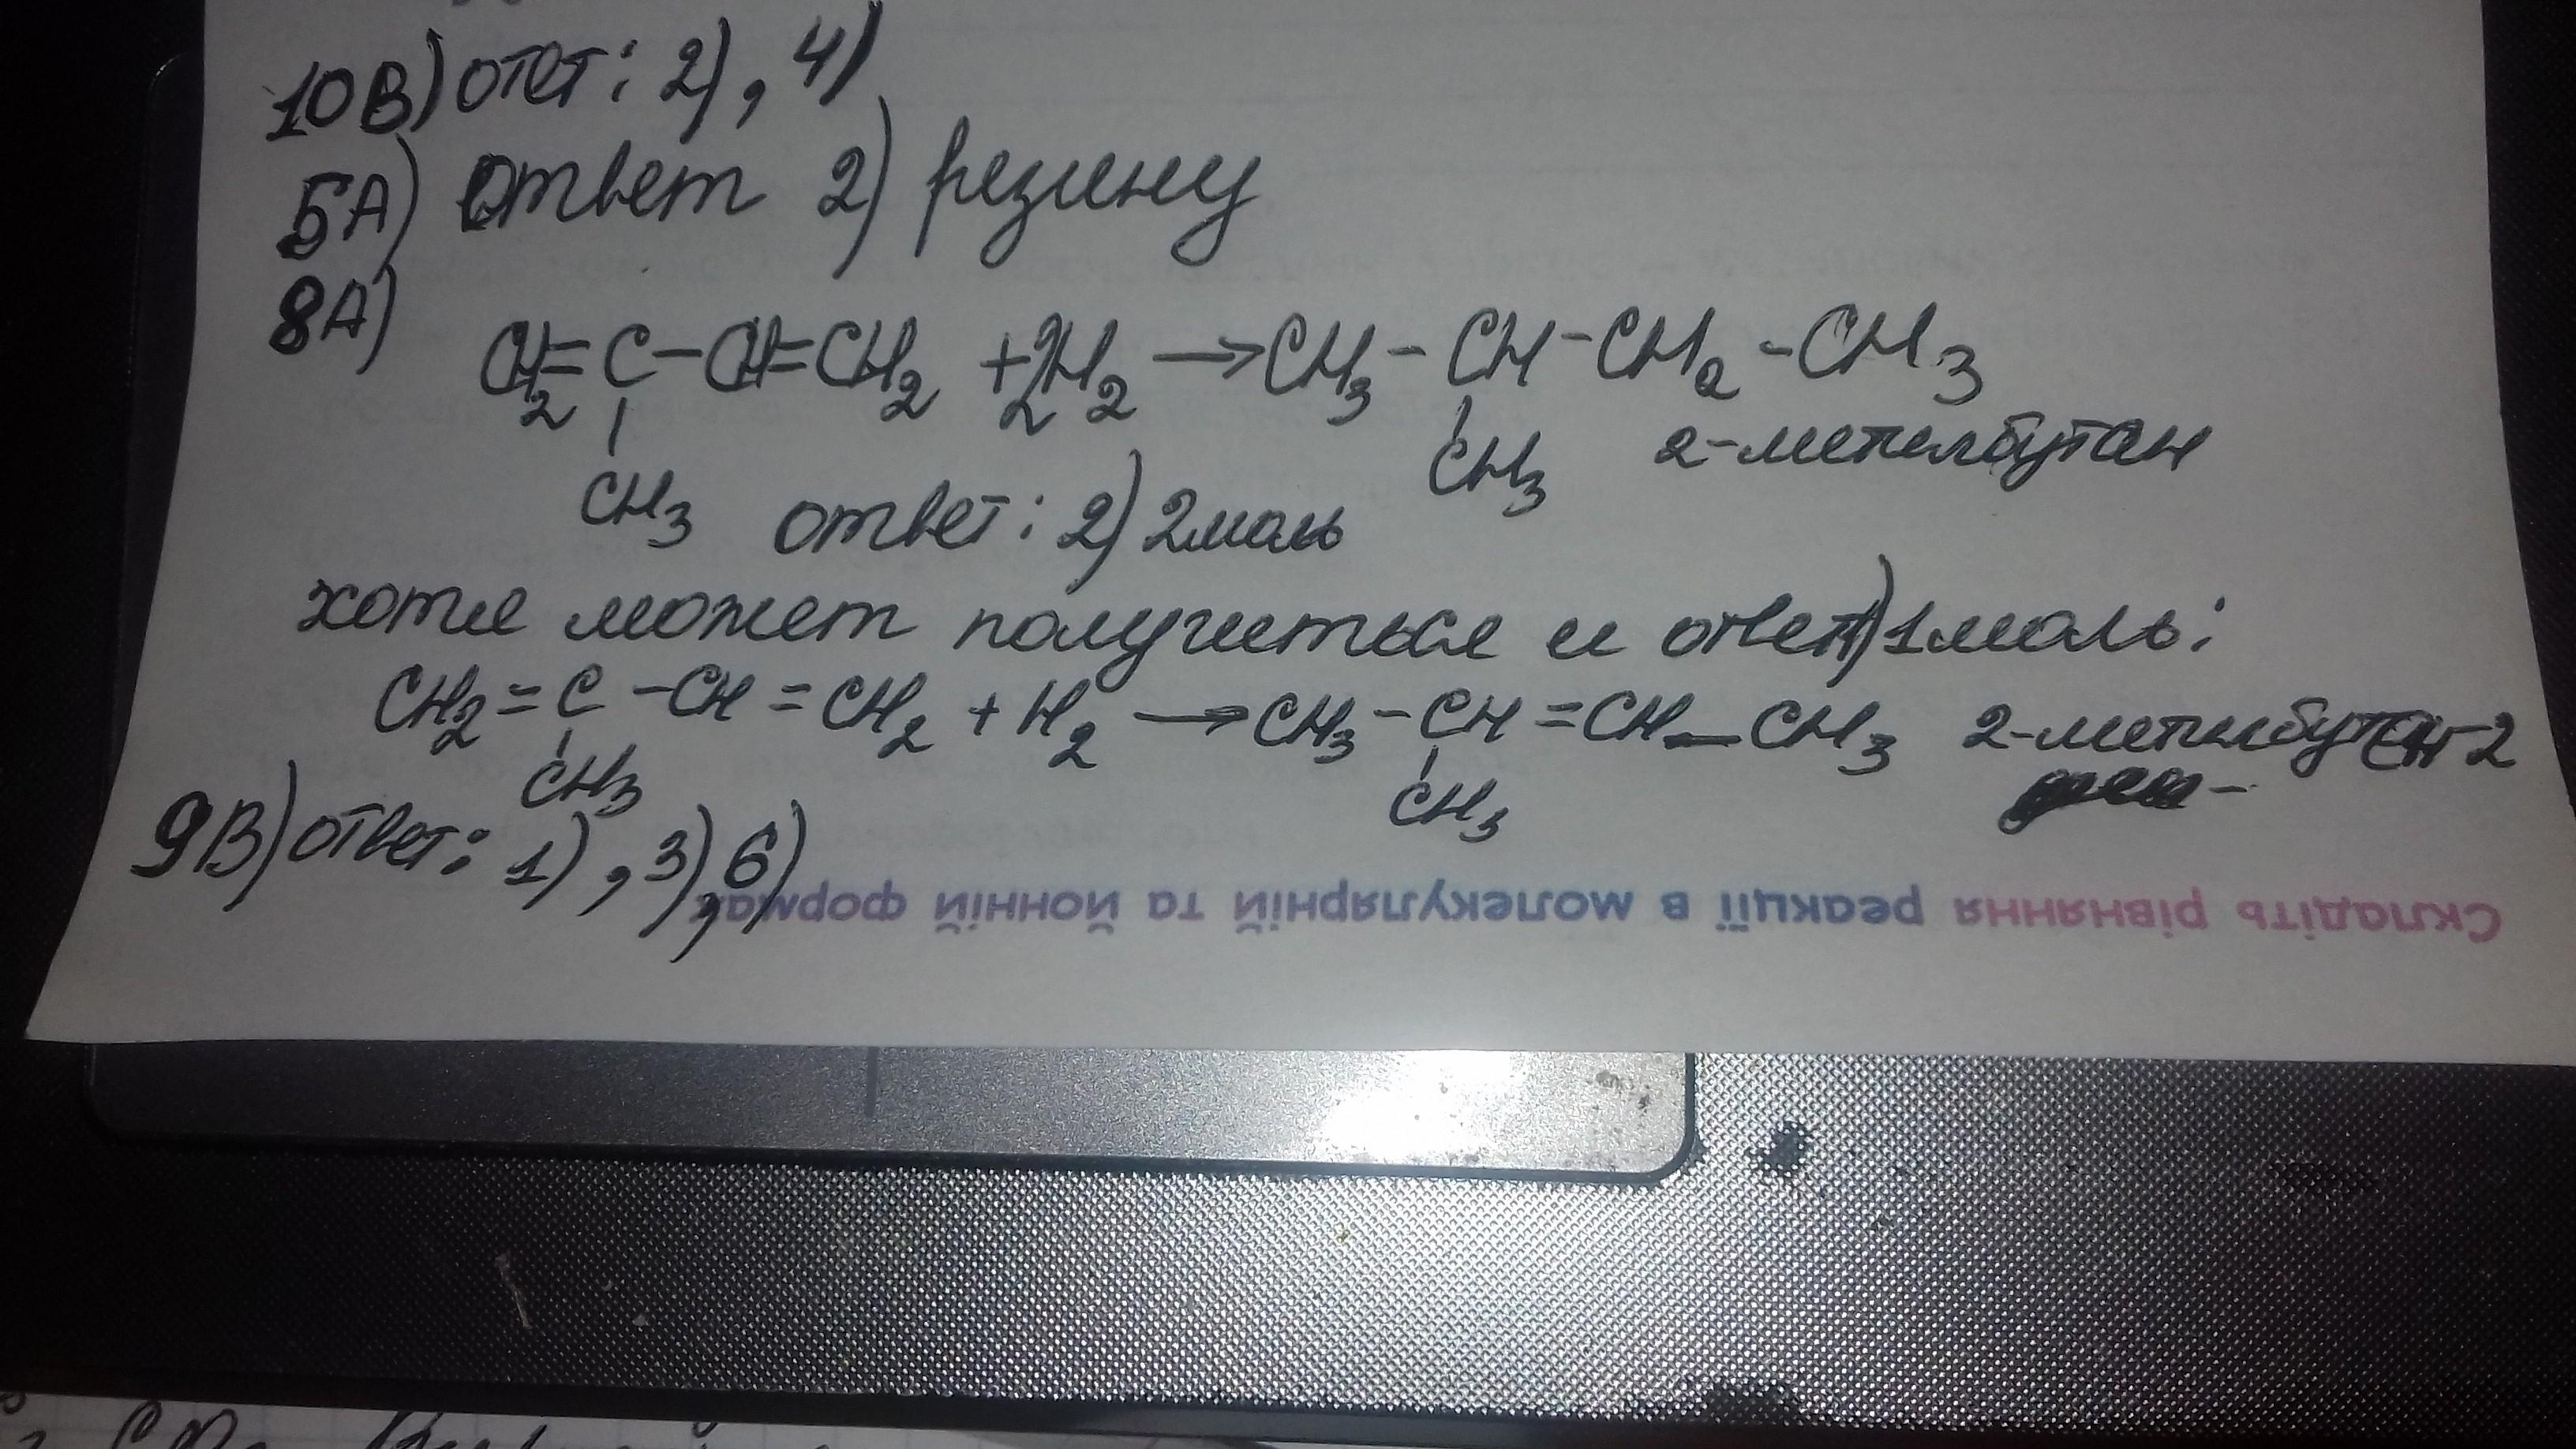 10В) отет: 2), 4)
5А) ответ 2) резину
8А)
CH2=C-CH=CH2 +2H2 →CH3-CH-CH2-CH3
CH3
CH3
2-метилбутан
ответ: 2) 2моль
хотя может получиться и ответ 1) 1 моль:
CH2=C-CH=CH2 + H2 →CH3-CH=CH-CH3 2-метилбутен-2
CH3
CH3
9В) ответ: 1), 3), 6)
Складіть рівняння реакції в молекулярній та йонній формах